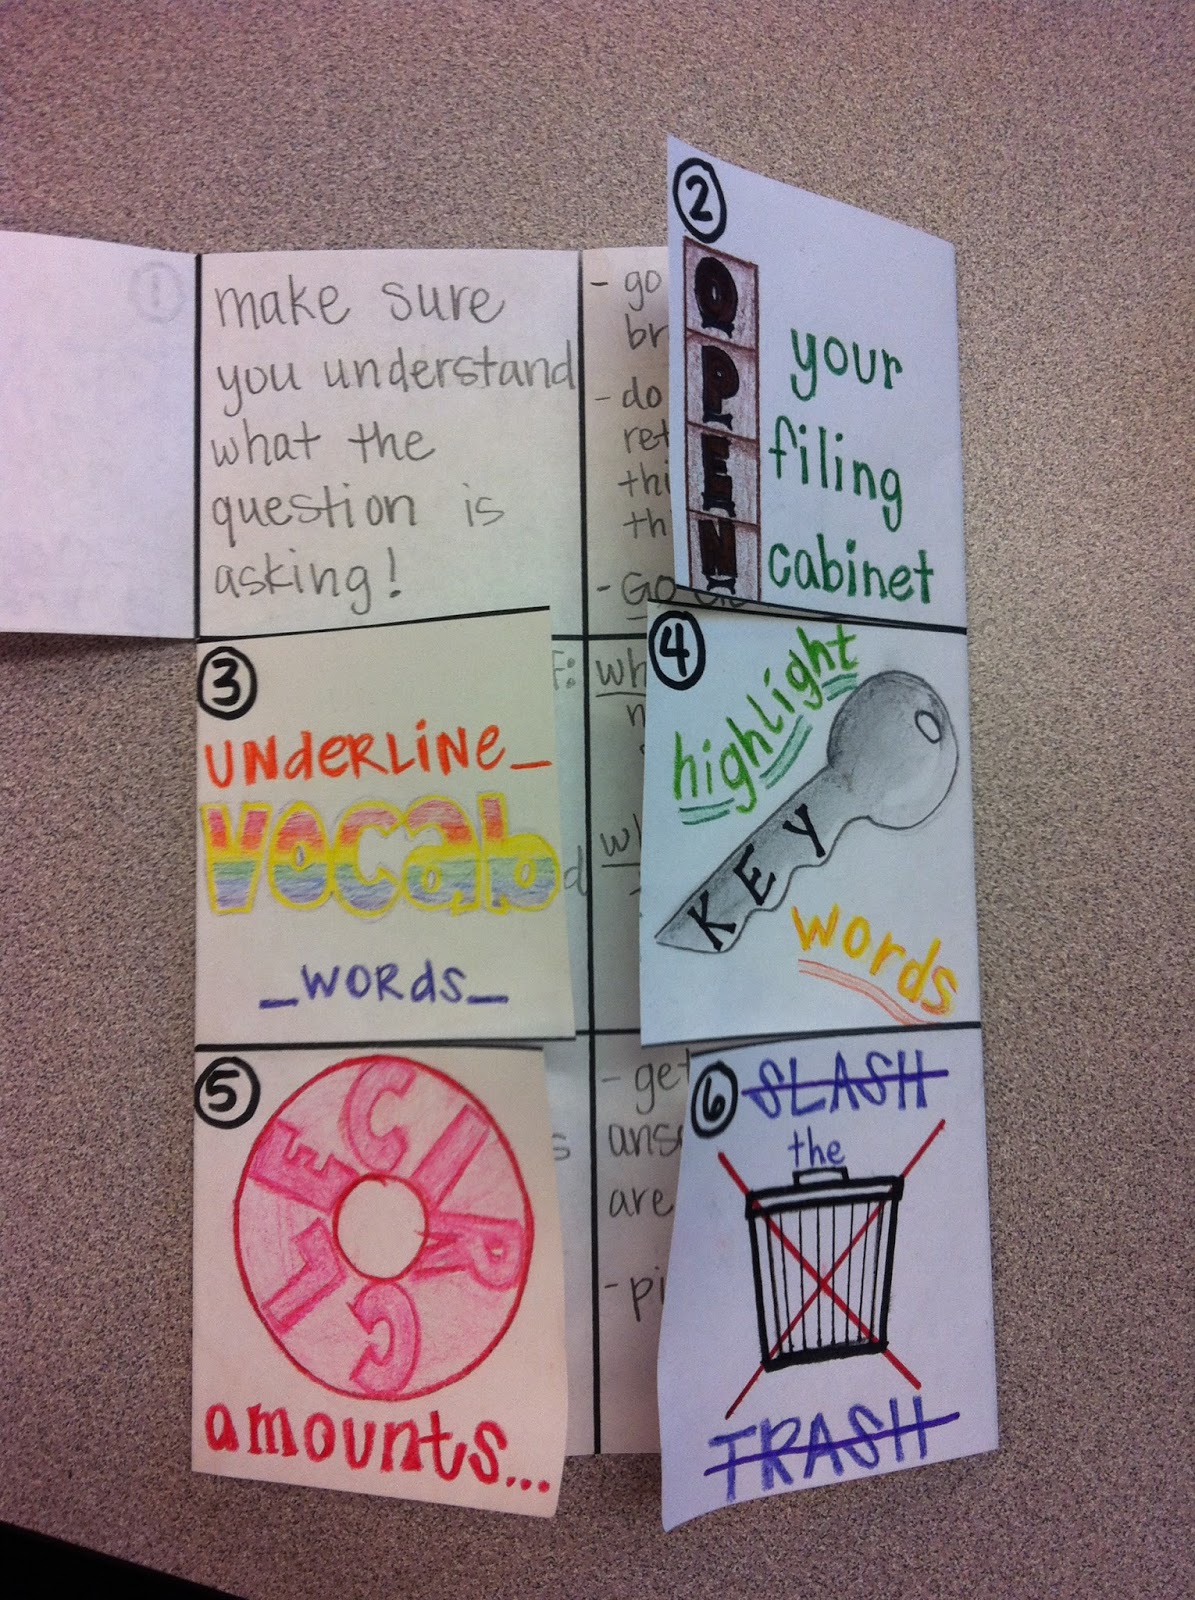 1
make sure
you understand
what the
question is
asking!
- go
- do
2
OPEN
your
filing
cabinet
3
UNdeRLiNe_
vocab
_woRds_
4
highlight
KEY
words
5
CIRCLE
amounts...
- get
are
6
SLASH
the
TRASH